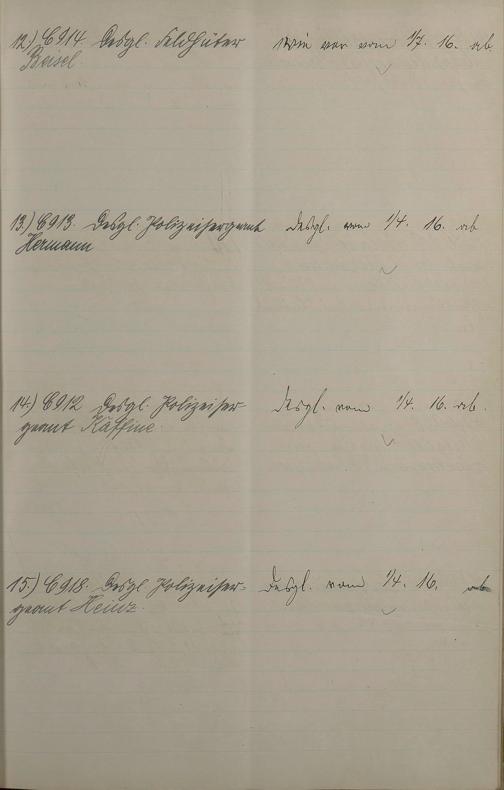 12.) C914. Desgl. Feldhüter wie vor vom 1/7. 16. ab.
Beisel
13.) C913. Desgl. Polizeisergeant Desgl. vom 1/4. 16. ab
Hermann
14.) C912 Desgl. Polizeiser- Desgl. vom 1/4. 16. ab.
geant Kaffine.
15.) C918. Desgl. Polizeiser- Desgl. vom 1/4. 16. ab
geant Heinz.